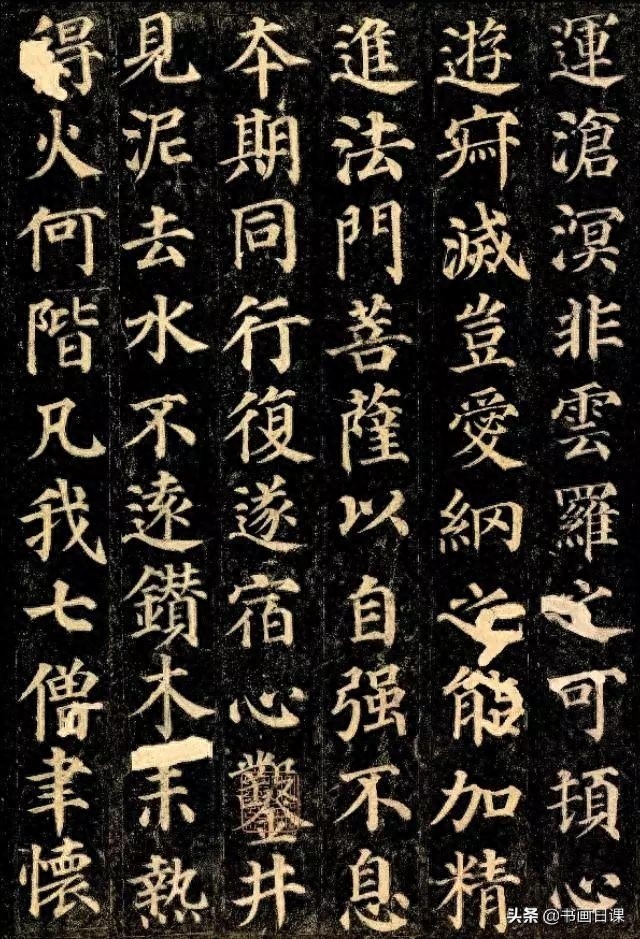 運滄溟非雲羅之可頓心
遊寂滅豈愛網之能加精
進法門菩薩以自强不息
本期同行復遂宿心鑿井
見泥去水不遠鑚木未熱
得火何階凡我七僧聿懷
头条 @书画日课